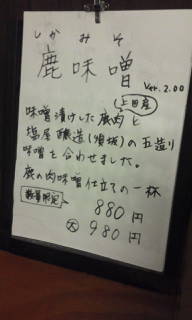 しかみそ
鹿味噌
Ver. 2.00
上田産
味噌漬けした鹿肉と
塩屋醸造(須坂)の玉造り
味噌を合わせました。
鹿の肉味噌仕立ての一杯
数量限定
880円
大 980円